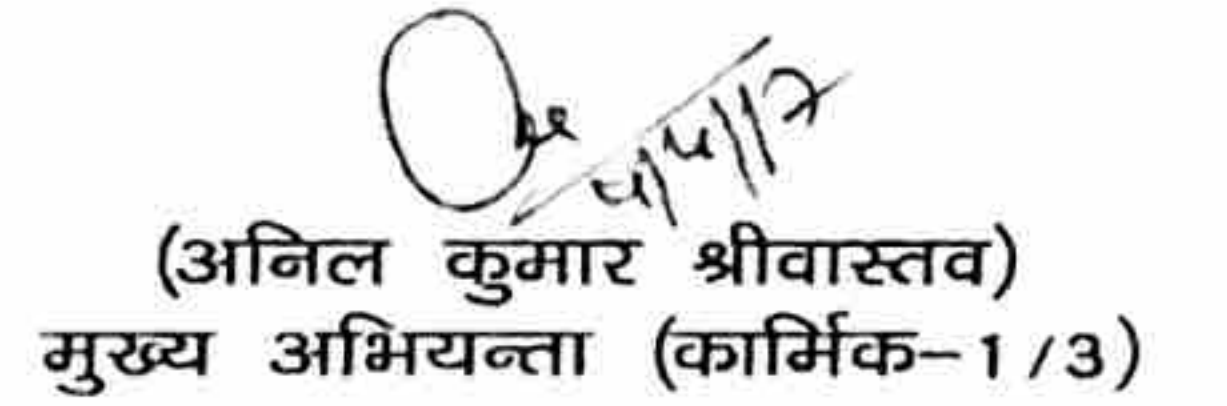 4/4/17
(अनिल कुमार श्रीवास्तव)
मुख्य अभियन्ता (कार्मिक-1/3)